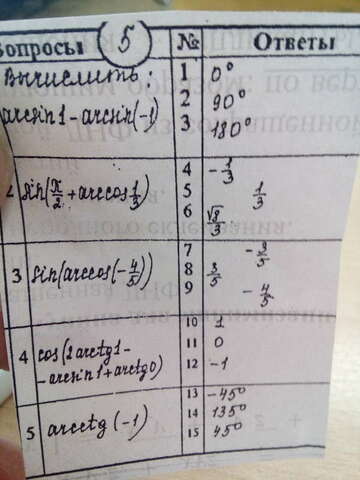 Вопросы 5 № Ответы
Вычислить: 1 0°
arcsin1 - arcsin(-1) 2 90°
3 180°
2 sin(π/2 + arccos 1/3) 4 -1/3
5 1/3
6 √8/3
3 sin(arccos(-4/5)) 7 -3/5
8 3/5
9 -4/5
4 cos(2arctg1- 10 1
-arcsin1+arctg0) 11 0
12 -1
5 arcctg(-1) 13 -45°
14 135°
15 45°